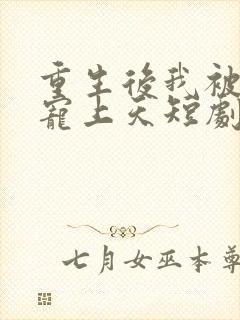 重生後我被
寵上天短劇
七月女巫本尊